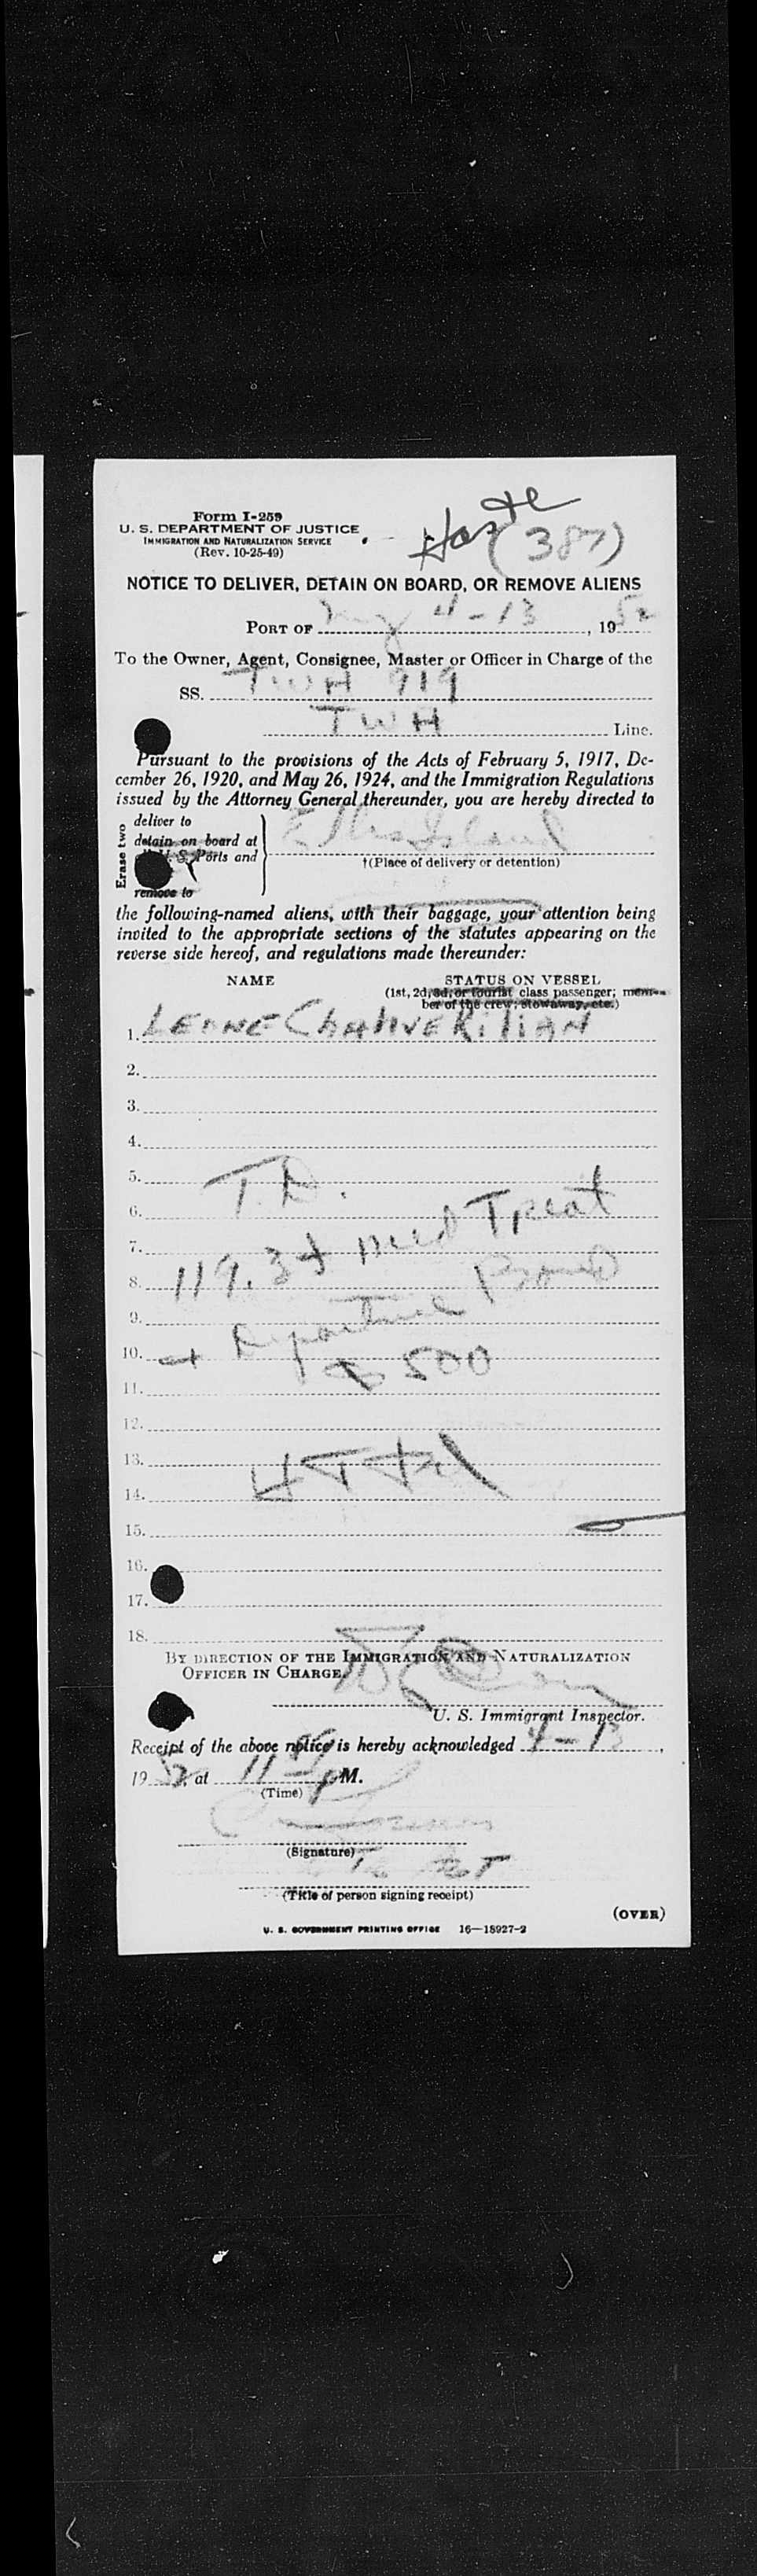 Form I-259
U. S. DEPARTMENT OF JUSTICE
IMMIGRATION AND NATURALIZATION SERVICE
(Rev. 10-25-49)
(387)
NOTICE TO DELIVER, DETAIN ON BOARD, OR REMOVE ALIENS
PORT OF ny 4-13, 1952
To the Owner, Agent, Consignee, Master or Officer in Charge of the
SS. TWA 919
TWA Line.
Pursuant to the provisions of the Acts of February 5, 1917, De-
cember 26, 1920, and May 26, 1924, and the Immigration Regulations
issued by the Attorney General thereunder, you are hereby directed to
Erase two
deliver to
detain on board at
U. S. Ports and
remove to
Ellis Island
†(Place of delivery or detention)
the following-named aliens, with their baggage, your attention being
invited to the appropriate sections of the statutes appearing on the
reverse side hereof, and regulations made thereunder:
NAME STATUS ON VESSEL
(1st, 2d, 3d, or tourist class passenger; mem-
ber of the crew; stowaway, etc.)
1. LEONE
2.
3.
4.
5. T.D.
6.
7. 119.3 + med Treat
8.
9. Departure Bond
10. + $500
11.
12.
13.
14.
15.
16.
17.
18.
BY DIRECTION OF THE IMMIGRATION AND NATURALIZATION
OFFICER IN CHARGE.
U. S. Immigrant Inspector.
Receipt of the above notice is hereby acknowledged 4-13,
1952, at 11 M.
(Time)
(Signature)
(Title of person signing receipt)
(OVER)
U. S. GOVERNMENT PRINTING OFFICE 16—18927-2